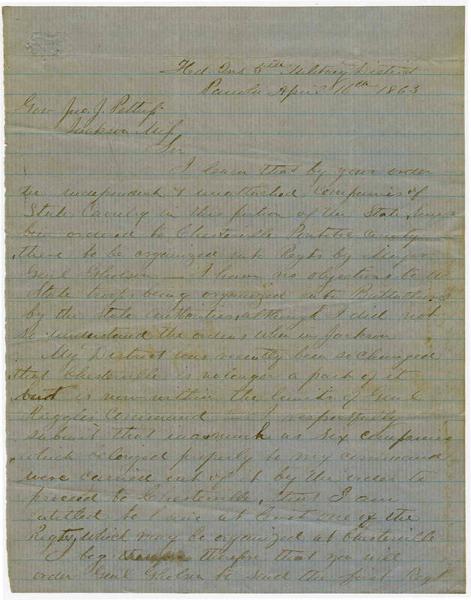 Hd Qrs 5th Military District
Panola April 10th 1863
Gov Jno. J. Pettus
Jackson Miss
Sir
I learn that by your order
the independent & unattached Companies of
State Cavalry in this portion of the State, have
been ordered to Chesterville Pontotoc County
there to be organized into Regts by Major
Genl Gholson — I have no objections to the
State troops being organized into Battalions
by the State authorities, although I did not
so understand the orders when in Jackson
My District has recently been so changed
that Chesterville is no longer a part of it
but is now within the limits of Genl
Ruggles Command — I respectfully
submit that inasmuch as six companies
which belonged properly to my command
were carried out of it by the order to
proceed to Chesterville, that I am
entitled to have at least one of the
Regts, which may be organized at Chesterville
I beg therefore that you will
order Genl Gholson to send the first Regt